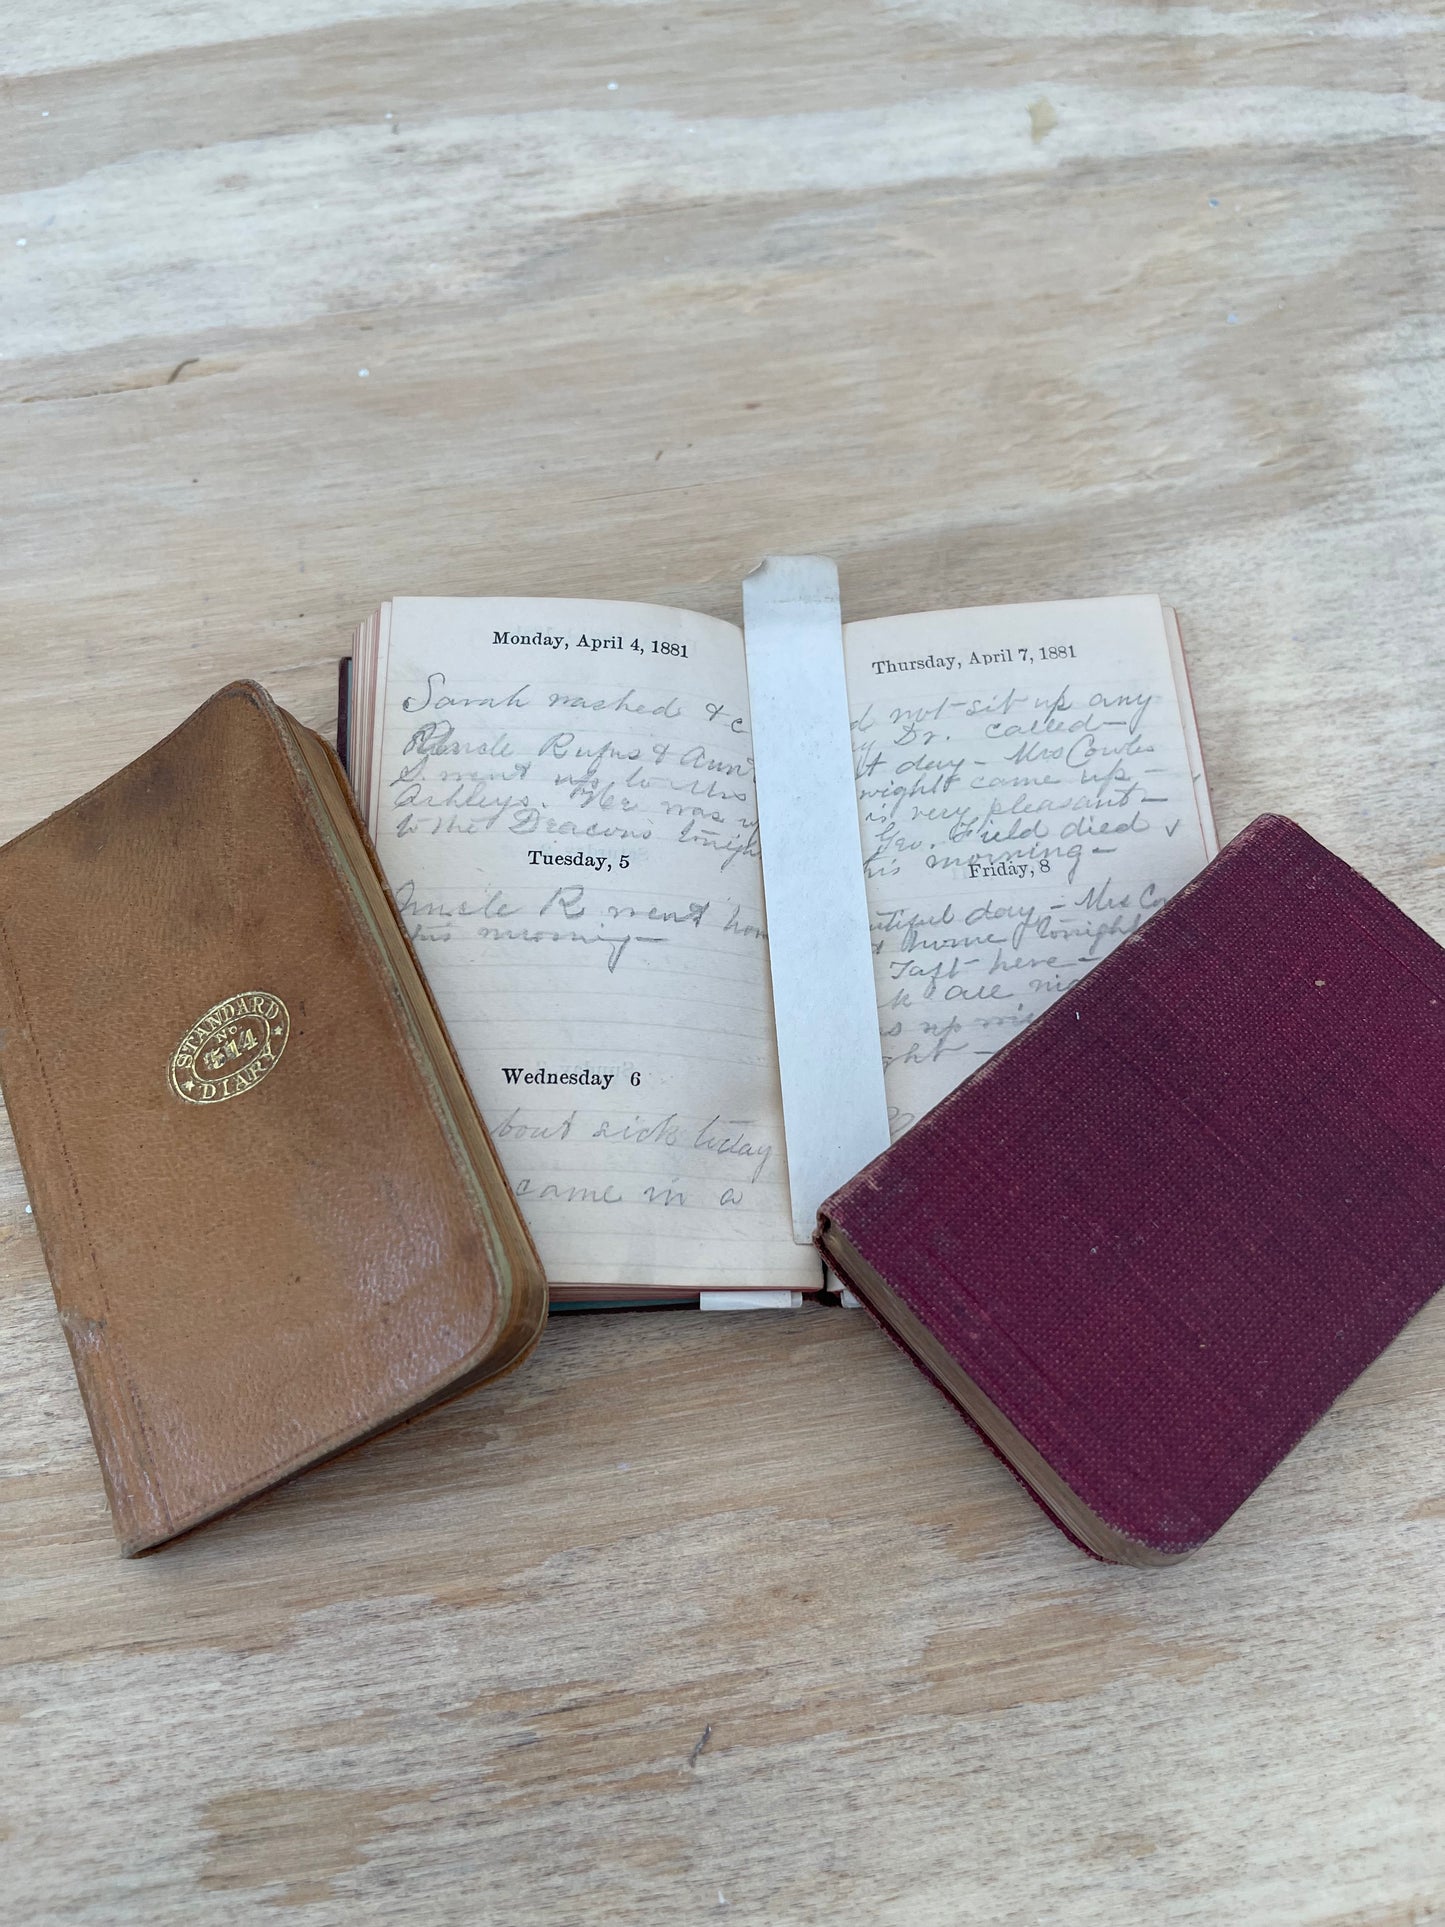 Monday, April 4, 1881
Sarah washed &
Uncle Rufus & Aunt
S. went up to Mrs
Ashleys. Mr was
to the Deacons tonigh
Tuesday, 5
Uncle R went hom
this morning —
Wednesday 6
bout sick today
came in a
Thursday, April 7, 1881
d not sit up any
y Dr. called —
t day — Mrs Cowles
night came up —
is very pleasant —
Geo. Field died
his morning —
Friday, 8
utiful day — Mrs Co
home tonight
Taft here —
k are
s up
ght —
STANDARD
No
514
DIARY